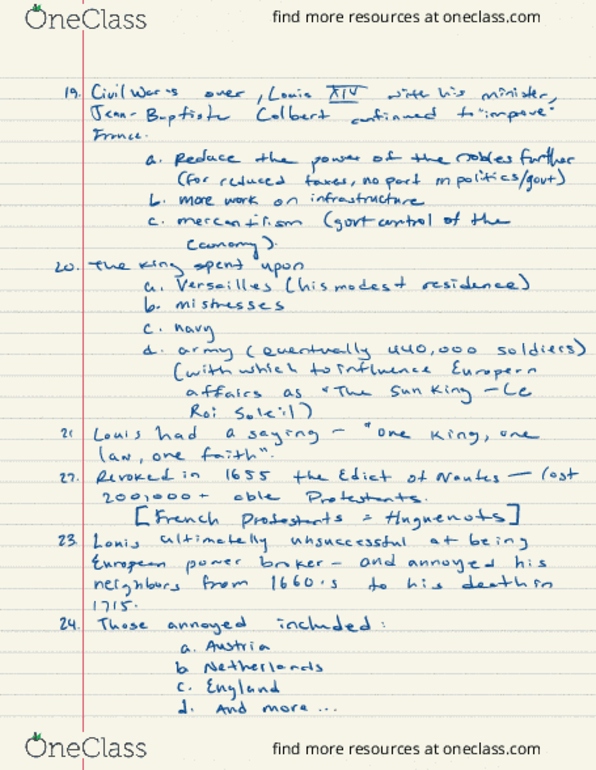 OneClass
find more resources at oneclass.com
19. Civil War is over, Louis XIV with his minister,
Jean-Baptiste Colbert continued to "improve"
France.
a. Reduce the power of the nobles further
(for reduced taxes, no part in politics/govt)
b. more work on infrastructure
c. mercantilism (govt control of the
economy).
20. The King spent upon
a. Versailles (his modest residence)
b. mistresses
c. navy
d. army (eventually 440,000 soldiers)
(with which to influence European
affairs as "The Sun King - Le
Roi Soleil)
21 Louis had a saying - "one King, one
law, one faith".
22. Revoked in 1655 the Edict of Nantes — lost
200,000+ able Protestants.
[French Protestants = Huguenots]
23. Louis ultimately unsuccessful at being
European power broker - and annoyed his
neighbors from 1660's to his death in
1715.
24. Those annoyed included:
a. Austria
b Netherlands
c. England
d. And more ...
OneClass
find more resources at oneclass.com